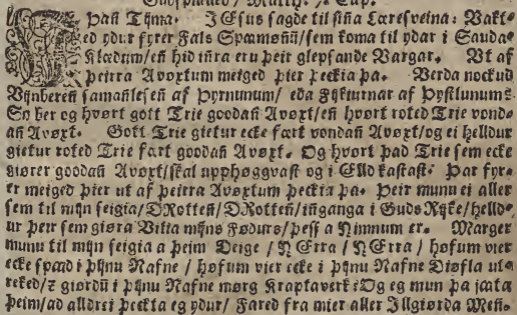 Gudspiallid / Matth. 7. Cap.
A Þañ Tijma. JEsus sagde til siña Læresveina: Vakt-
ed ydur fyrer Fals Spæmøñũ/sem koma til ydar i Sauda-
Klædum/eñ hid iñra eru þeir glepsande Vargar. Vt af
þeirra Avøxtum meiged þier þeckia þa. Verda nockud
Vijnberen samañleseñ af Þyrnunum/ eda Fijkiurnar af Þystlunum?
So ber og hvørt gott Trie goodañ Avøxt/eñ hvørt roted Trie vond-
añ Avøxt. Gott Trie gietur ecke fært vondañ Avøxt/og ei helldur
gietur roted Trie fært goodañ Avøxt. Og hvørt þad Trie sem ecke
giører goodañ Avøxt/skal upphøggvast og i Elld kastast. Þar fyr-
er meiged þier ut af þeirra Avøxtum þeckia þa. Þeir munu ei aller
sem til mijn seigia/DRotteñ/DRotteñ/iñganga i Guds Rijke/helld-
ur þeir sem giøra Vilia mijns Fødurs/þess a Himnum er. Marger
munu til mijn seigia a þeim Deige / HErra / HErra / høfum vier
ecke spæd i þijnu Nafne / høfum vier ecke i þijnu Nafne Diøfla ut-
reked/ꝛ giørdũ i þijnu Nafne mørg Kraptaverk? Og eg mun þa jæta
þeim/ad alldrei þeckta eg ydur/ Fared fra mier aller Illgiørda Meñ.